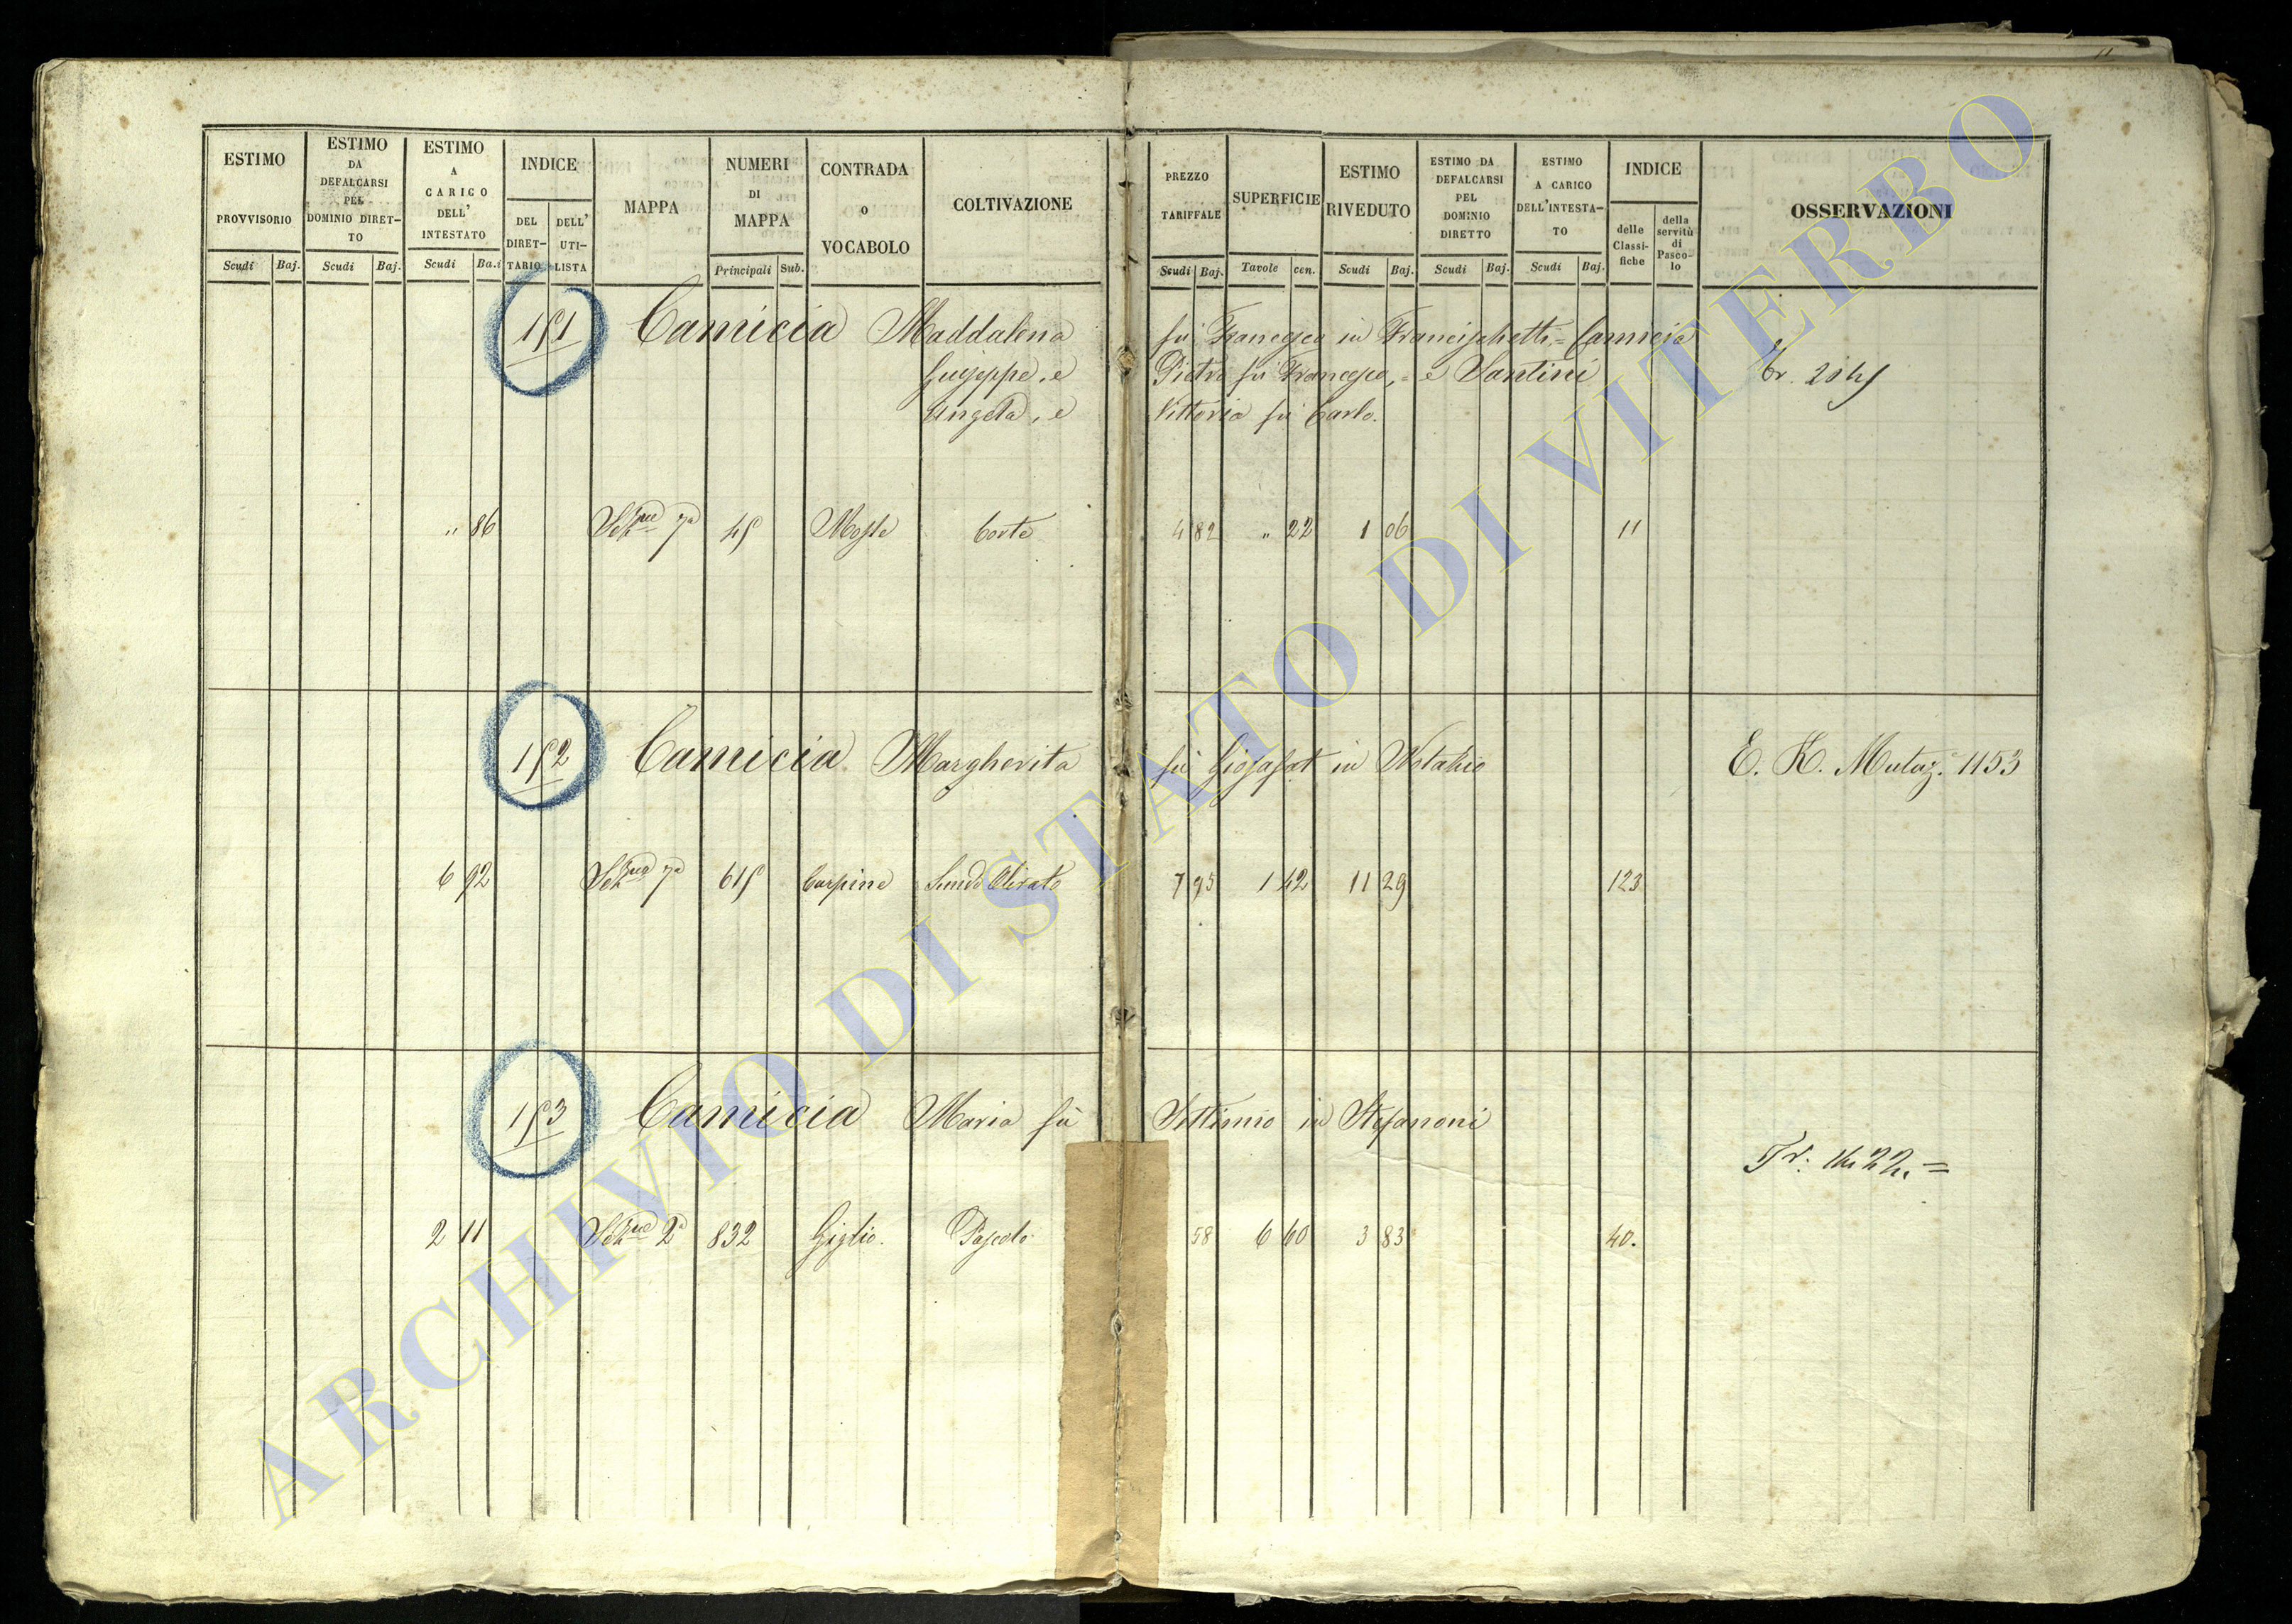 ESTIMO PROVVISORIO
Scudi Baj.
ESTIMO DA DEFALCARSI PEL DOMINIO DIRET-TO
Scudi Baj.
ESTIMO A CARICO DELL' INTESTATO
Scudi Ba.i
INDICE
DEL DIRET-TARIO
DELL' UTI-LISTA
MAPPA
NUMERI DI MAPPA
Principali Sub.
CONTRADA O VOCABOLO
COLTIVAZIONE
PREZZO TARIFFALE
Scudi Baj.
SUPERFICIE
Tavole cen.
ESTIMO RIVEDUTO
Scudi Baj.
ESTIMO DA DEFALCARSI PEL DOMINIO DIRETTO
Scudi Baj.
ESTIMO A CARICO DELL'INTESTA-TO
Scudi Baj.
INDICE
delle Classi-fiche
della servitù di Pasco-lo
OSSERVAZIONI
151 Camicia Maddalena fù Francesco in Francischetti = Camicia
Giuseppe, e Pietro fù Francesco, = e Santini
Angela, e Vittoria fù Carlo.
" 86 7a 45 Corte 4 82 " 22 1 06 11
152 Camicia Margherita fù Giosafat in E. K. Mutaz. 1153
6 92 7a 615 Carpine Olivato 7 95 1 42 11 29 123
153 Camicia Maria fù Settimio in Stefanoni
2 11 2a 832 Giglio. Pascolo 58 6 60 3 83 40.
ARCHIVIO DI STATO DI VITERBO